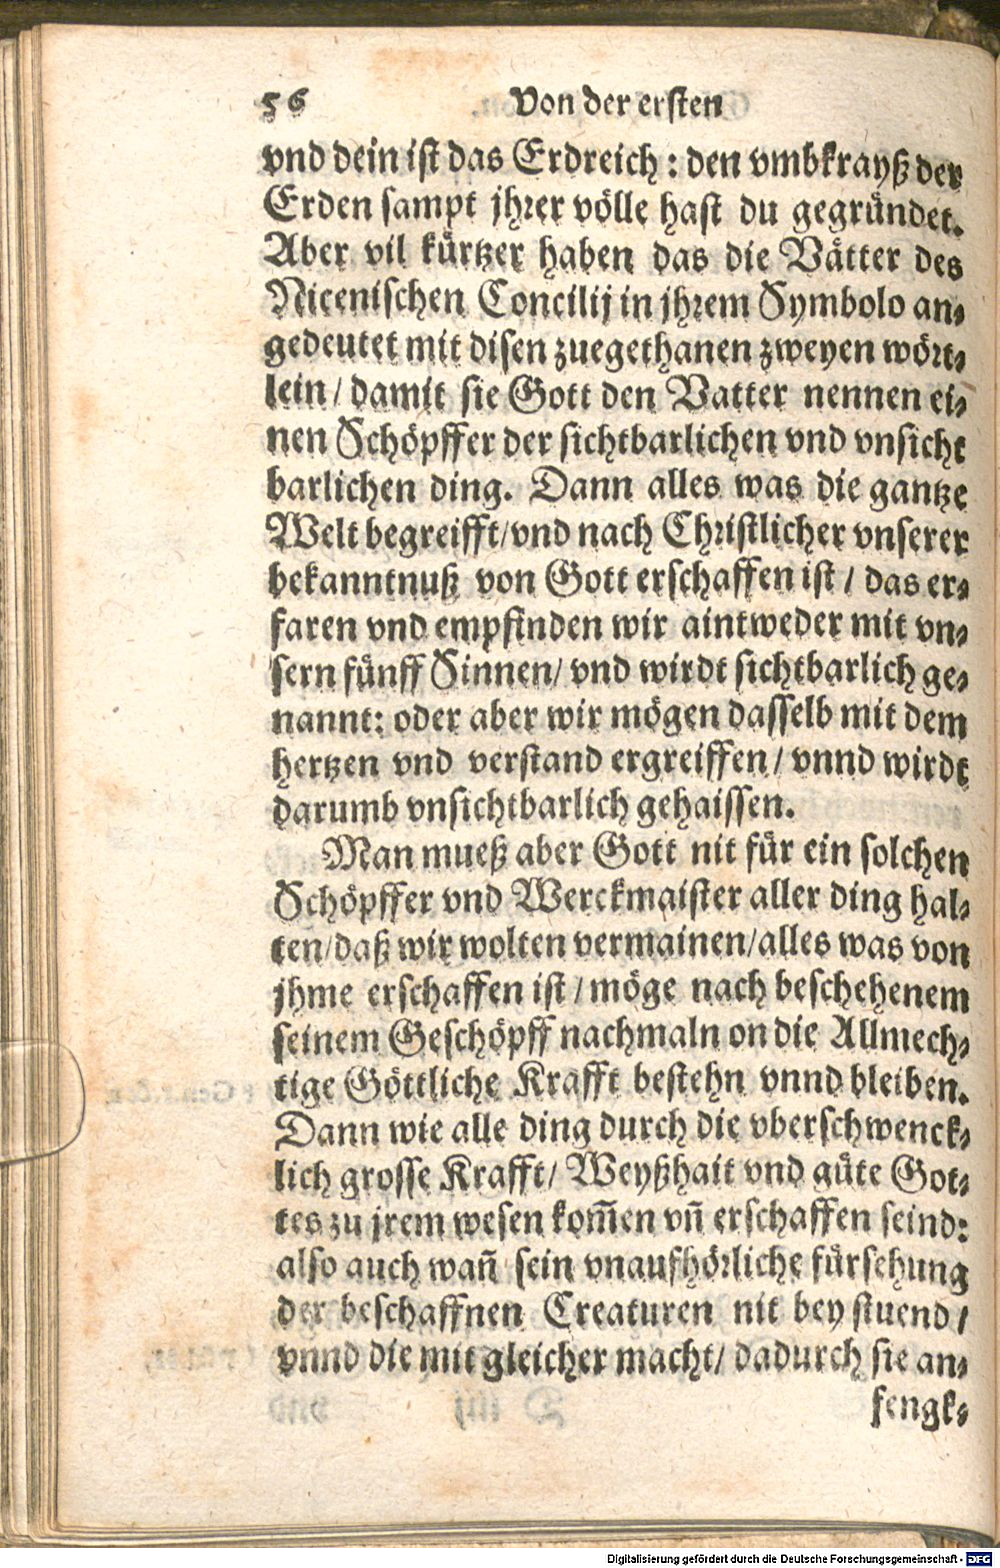 56 Von der ersten
vnd dein ist das Erdreich : den vmbkrayß der
Erden sampt jhrer völle hast du gegründet.
Aber vil kürtzer haben das die Vätter des
Nicenischen Concilij in jhrem Symbolo an-
gedeutet mit disen zuegethanen zweyen wört-
lein / damit sie Gott den Vatter nennen ei-
nen Schöpffer der sichtbarlichen vnd vnsicht
barlichen ding. Dann alles was die gantze
Welt begreifft / vnd nach Christlicher vnserer
bekanntnuß von Gott erschaffen ist / das er-
faren vnd empfinden wir aintweder mit vn-
sern fünff Sinnen / vnd wirdt sichtbarlich ge-
nannt: oder aber wir mögen dasselb mit dem
hertzen vnd verstand ergreiffen / vnnd wirdt
darumb vnsichtbarlich gehaissen.
Man mueß aber Gott nit für ein solchen
Schöpffer vnd Werckmaister aller ding hal-
ten / daß wir wolten vermainen / alles was von
jhme erschaffen ist / möge nach beschehenem
seinem Geschöpff nachmaln on die Allmech-
tige Göttliche Krafft bestehn vnnd bleiben.
Dann wie alle ding durch die vberschwenck-
lich grosse Krafft / Weyßhait vnd güte Got-
tes zu jrem wesen kom̃en vñ erschaffen seind:
also auch wañ sein vnaufhörliche fürsehung
der beschaffnen Creaturen nit bey stuend /
vnnd die mit gleicher macht / dadurch sie an-
fengk-
Digitalisierung gefördert durch die Deutsche Forschungsgemeinschaft - DFG